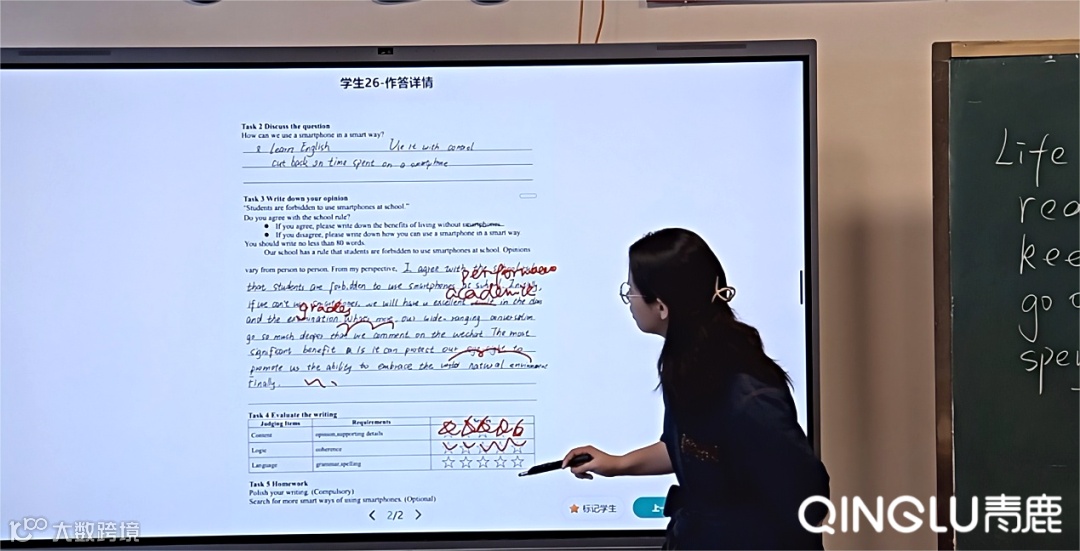 学生26-作答详情
Task 2 Discuss the question
How can we use a smartphone in a smart way?
learn English Use it with control
cut back on time spent on a smartphone
Task 3 Write down your opinion
"Students are forbidden to use smartphones at school."
Do you agree with the school rule?
● If you agree, please write down the benefits of living without smartphones.
● If you disagree, please write down how you can use a smartphone in a smart way.
You should write no less than 80 words.
Our school has a rule that students are forbidden to use smartphones at school. Opinions
vary from person to person. From my perspective, I agree with the
performance
that students are forbidden to use smartphones at school.
academic
if we can't use smartphones, we will have a excellent in the class
grades
and the examination. What's more, our wide-ranging conversation
go so much deeper that we comment on the wechat. The most
significant benefit is it can protect our eyesight to
promote us the ability to embrace the natural environment
finally.
Task 4 Evaluate the writing
Judging Items Requirements
Content opinion,supporting details
Logic coherence
Language grammar,spelling
Task 5 Homework
Polish your writing. (Compulsory)
Search for more smart ways of using smartphones. (Optional)
< 2/2 >
标记学生
上一
Life
rea
kee
go
spe
QINGLU青鹿
大数跨境